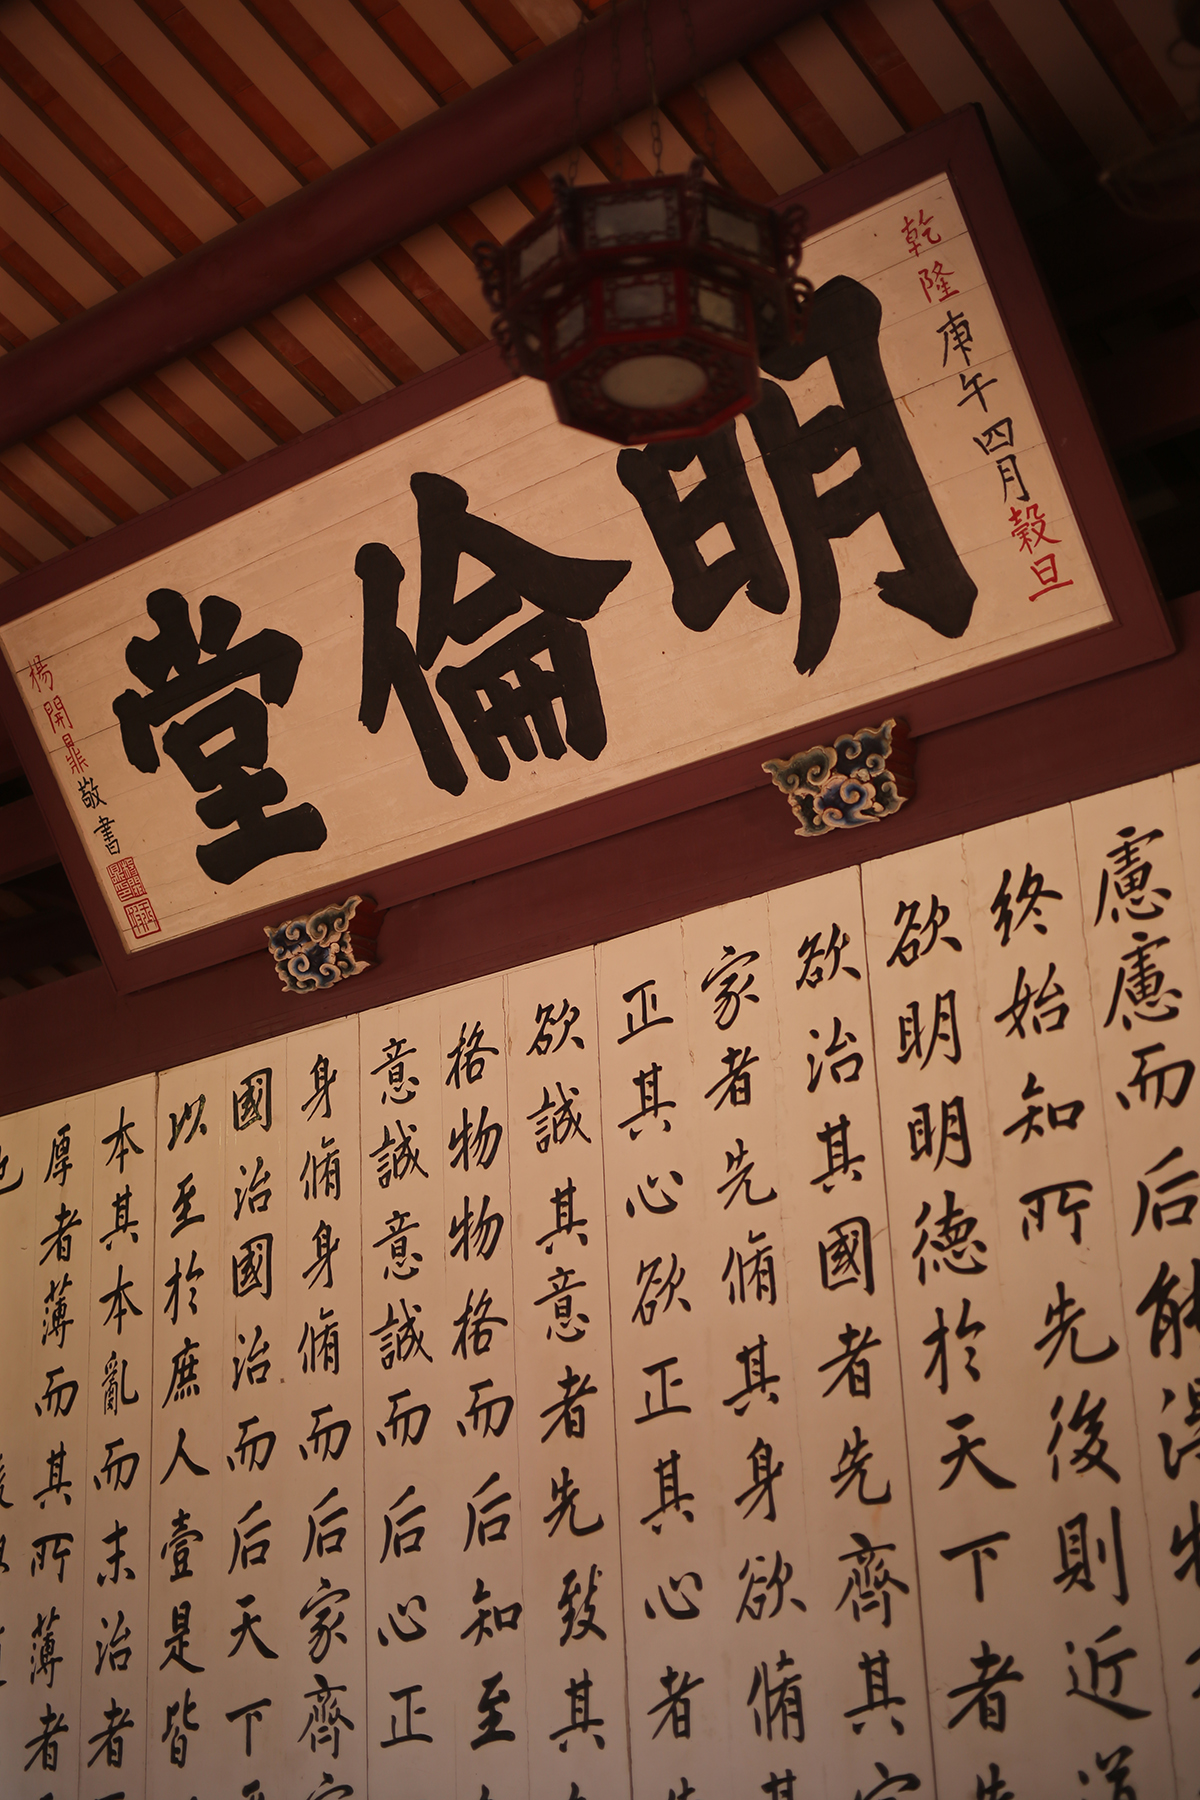 乾隆庚午四月穀旦
明倫堂
楊開鼎敬書
慮慮而后能得物
終始知所先後則近道
欲明明德於天下者先
欲治其國者先齊其家
家者先脩其身欲脩其
正其心欲正其心者先
欲誠其意者先致其
格物物格而后知至
意誠意誠而后心正
身脩身脩而后家齊家
國治國治而后天下
以至於庶人壹是皆
本其本亂而末治者
厚者薄而其所薄者
也